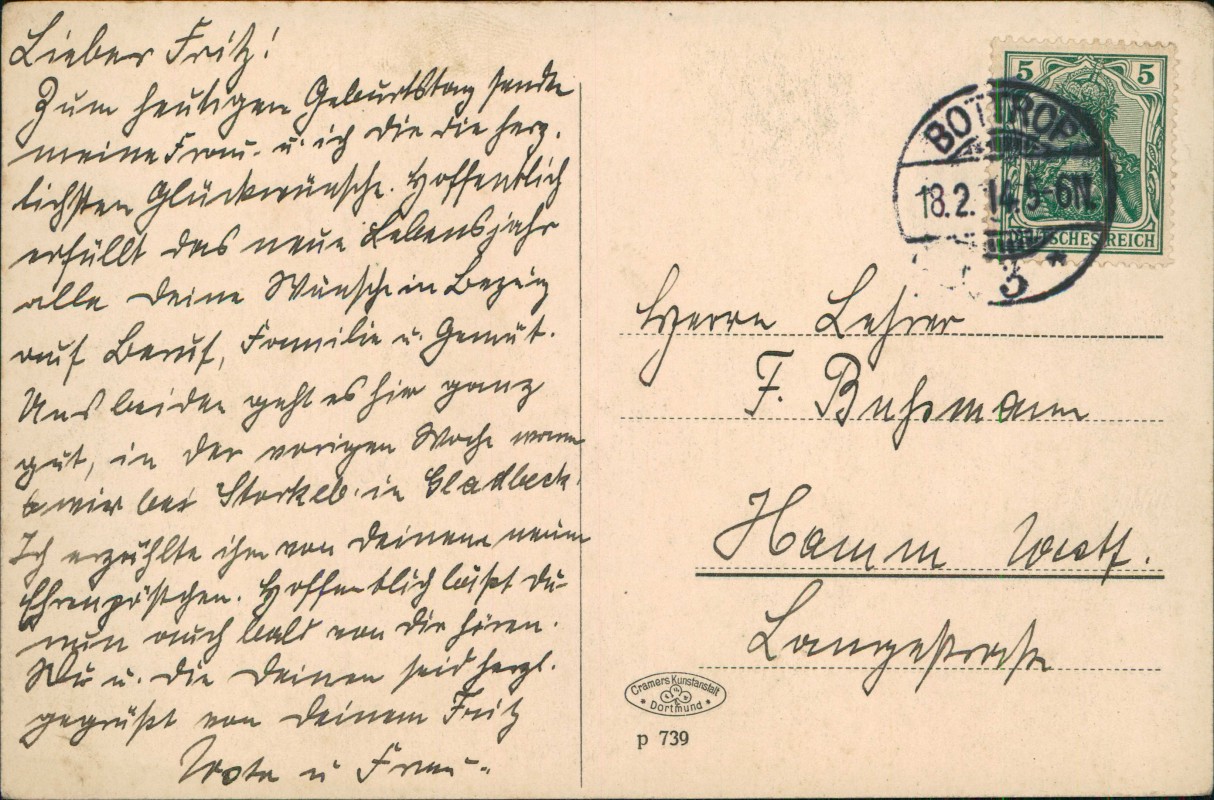 Lieber Fritz!
Zum heutigen Geburtstag senden
meine Frau u. ich Dir die herz-
lichsten Glückwünsche. Hoffentlich
erfüllt das neue Lebensjahr
alle Deine Wünsche in Bezug
auf Beruf, Familie u. Gemüt.
Uns beiden geht es hier ganz
gut, in der vorigen Woche waren
wir bei Storkeb. in Gladbeck.
Ich erzählte ihm von Deinem neuen
Ehrenpöstchen. Hoffentlich läßt Du
nun auch bald von Dir hören.
Du u. die Deinen seid herzl.
gegrüßt von Deinem Fritz
u Frau.
5 5
DEUTSCHES REICH
BOTTROP
18.2.14.5-6N.
3
Herrn Lehrer
F. Buhsmann
Hamm Westf.
Langestraße
Cramers Kunstanstalt
Dortmund
p 739